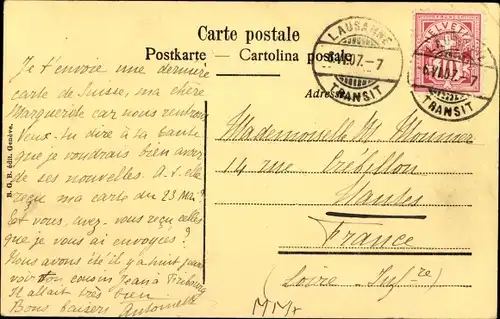 Carte postale
Postkarte — Cartolina postale
Adresse
LAUSANNE
6.VI.07.–7
TRANSIT
HELVETIA
10
LAUSANNE
6.VI.07.–7
TRANSIT
B. G. B. édit. Genève.
Je t'envoie une dernière
carte de Suisse, ma chère
Marguerite car nous rentrons
Veux-tu dire à ta tante
que je voudrais bien avoir
de ses nouvelles. A-t-elle
reçu ma carte du 23 Mai?
Et vous, avez-vous reçu celles
que je vous ai envoyées?
Nous avons été il y a huit jours
voir ton cousin Jean à Fribourg
Il allait très bien
Bons baisers Antoinette
Mademoiselle M. Monnier
14 rue Crébillon
Nantes
France
(Loire Inf.re)